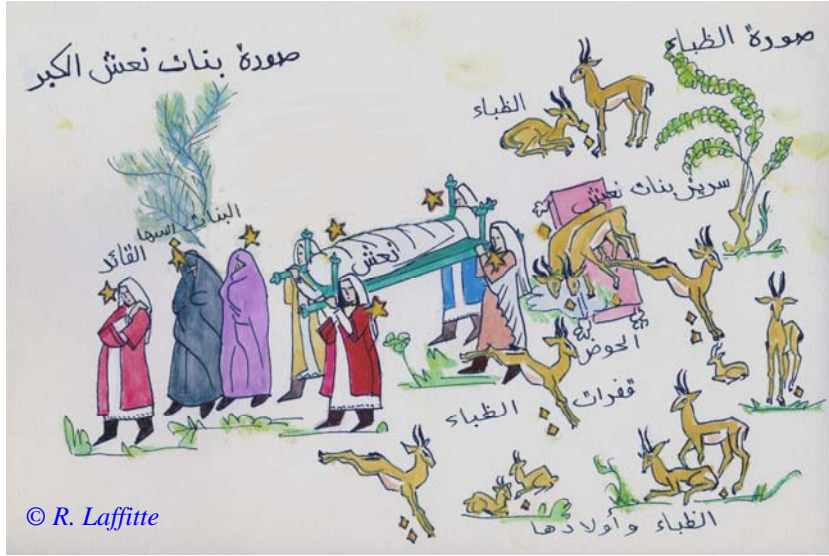 صورة الظباء
صورة بنات نعش الكبر
الظباء
سرير بنات نعش
البنات
القائد
نعش
الحوض
قفزات الظباء
الظباء وأولادها
© R. Laffitte